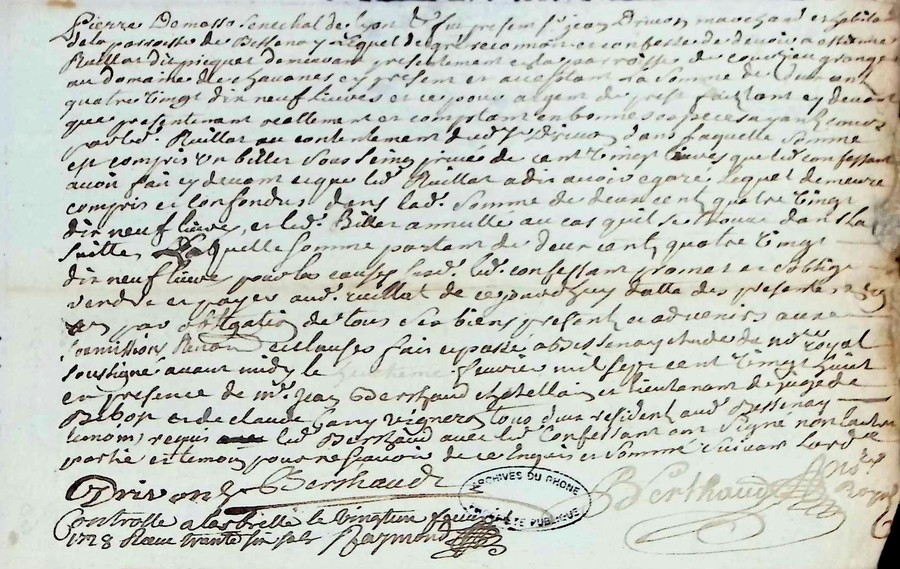 Pierre Demasso senechal de Lyon &c fut present sr jean Drivon marchand et habitan
de la parroisse de Bessenay lequel de gré reconnoit et confesse de devoir a estienne
Ruillat dit picquet demeurant presentement en la parroisse de courzieu granger
au domaine de chavanes cy present et acceptant la somme de deux cent
quatre vingt dix neuf livres et ce pour argent de prest faitzant cy devant
que presentement reallement et comptant en bonnes especes ayant cours
par led. Ruillat au contentement dud. sr Drivon dans laquelle somme
est compris un billet sous seing privé de cent vingt livres que led. confessant
avoir fait cy devant et que led. Ruillat a dit avoir egaré lequel demeure
compris et confondus dans lad. somme de deux cent quatre vingt
dix neuf livres, et led. Billet annullé au cas qu'il se trouve dans la
suitte, Laquelle somme portant de deux cent quatre vingt
dix neuf livres pour les causes susd. led. confessant promet et s'oblige
rendre et payer aud. ruillat de ce jourdhuy datte des presentes en
par obligation de tous ses biens presents et advenirs avec
soumissions Renon. et clauses fait et passé a Bessenay etude du nore royal
soussigné avant midy le fevrier mil sept cent vingt huit
en presence de me jean Berthaud chatellain et lieutenant de juge de
Bibost et de claude gany vigneron tous deux resident aud. Bessenay
temoins requis led. Berthaud avec led. confessant ont signé non l'autre
partie et temoin pour ne sçavoir de ce enquis et sommé suivant l'ord.ce
Drivon Berthaud Berthaud Nore royal
Controllé a larbresle le vingt un fevrier
1728 Receu trente six sols Raymond
ARCHIVES DU RHONE
PROPRIÉTÉ PUBLIQUE